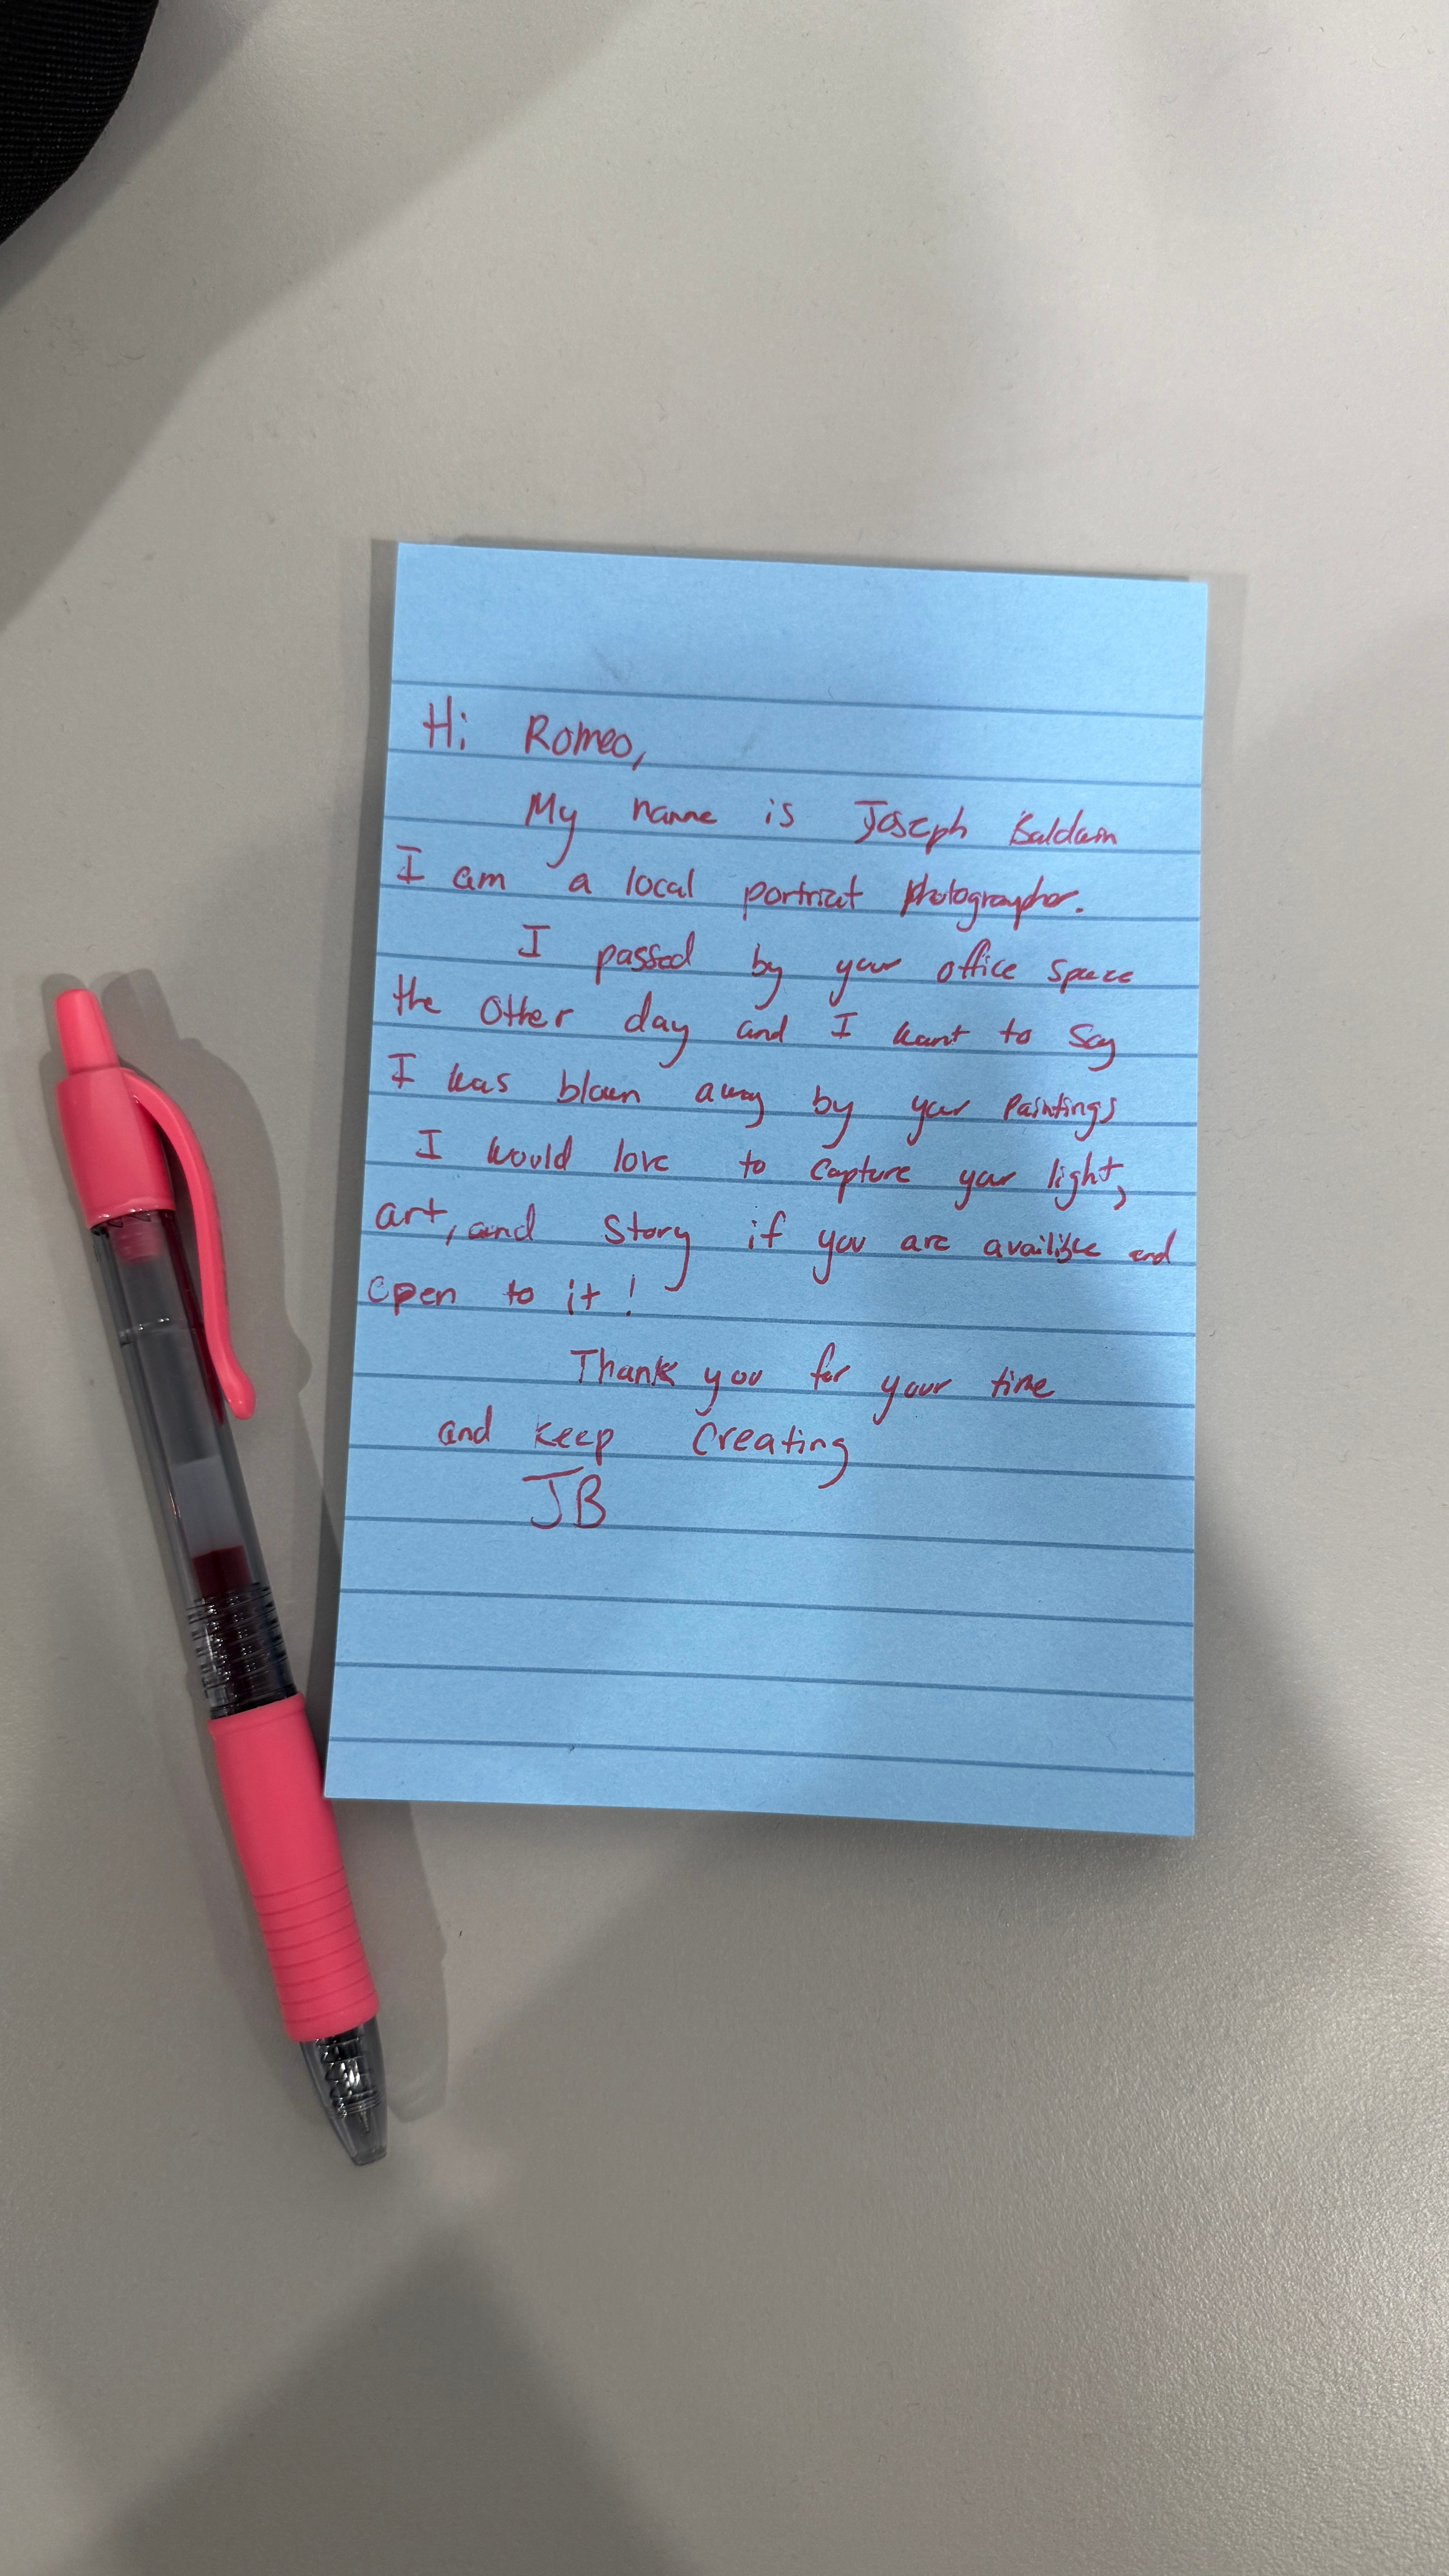 Hi Romeo,
My name is Joseph Baldwin
I am a local portriat photographer.
I passed by your office space
the other day and I want to say
I was blown away by your paintings
I would love to capture your light,
art, and story if you are availible and
open to it!
Thank you for your time
and keep creating
JB